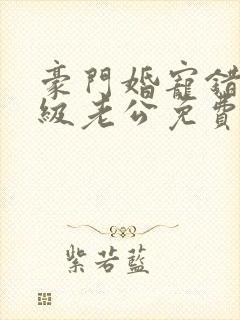 豪門婚寵錯
級老公免費
紫若藍